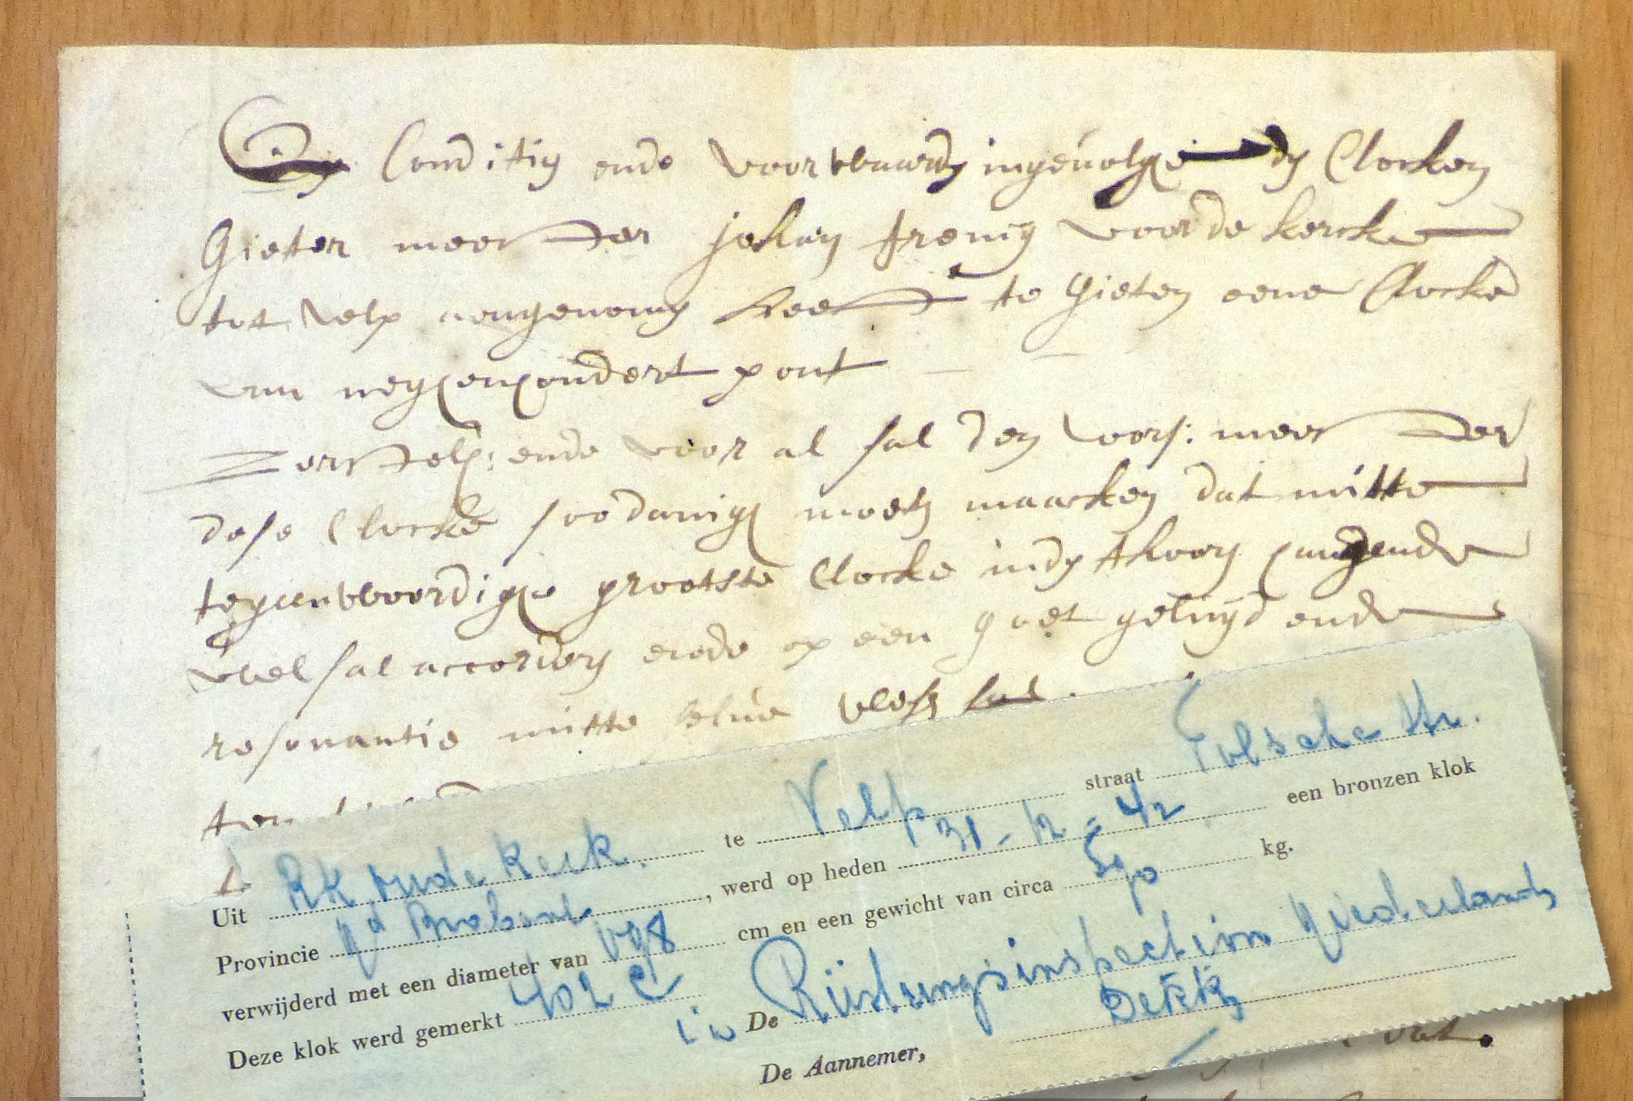 Conditien ende voorwaarden ingevolge den Clocken
Gieter meester Johan fremij voor de kercke
tot Velp aengenomen heeft te Gieten eene Clocke
van negenhondert pont
Eerstelij: ende voor al sal den voors: meester
dese Clocke soodanigh moeten maacken dat mitte
tegenwoordige grootste Clocke inden thoorn hangende
wel sal accorden ende op een goet geluyd ende
resonantie mitte selve
Uit RK oude kerk. te Velp straat Tolsche str.
Provincie Nd Brabant, werd op heden 31-12-42 een bronzen klok
verwijderd met een diameter van 098 cm en een gewicht van circa 590 kg.
Deze klok werd gemerkt 402 C
De Rüstungsinspection Niederlande
De Aannemer,